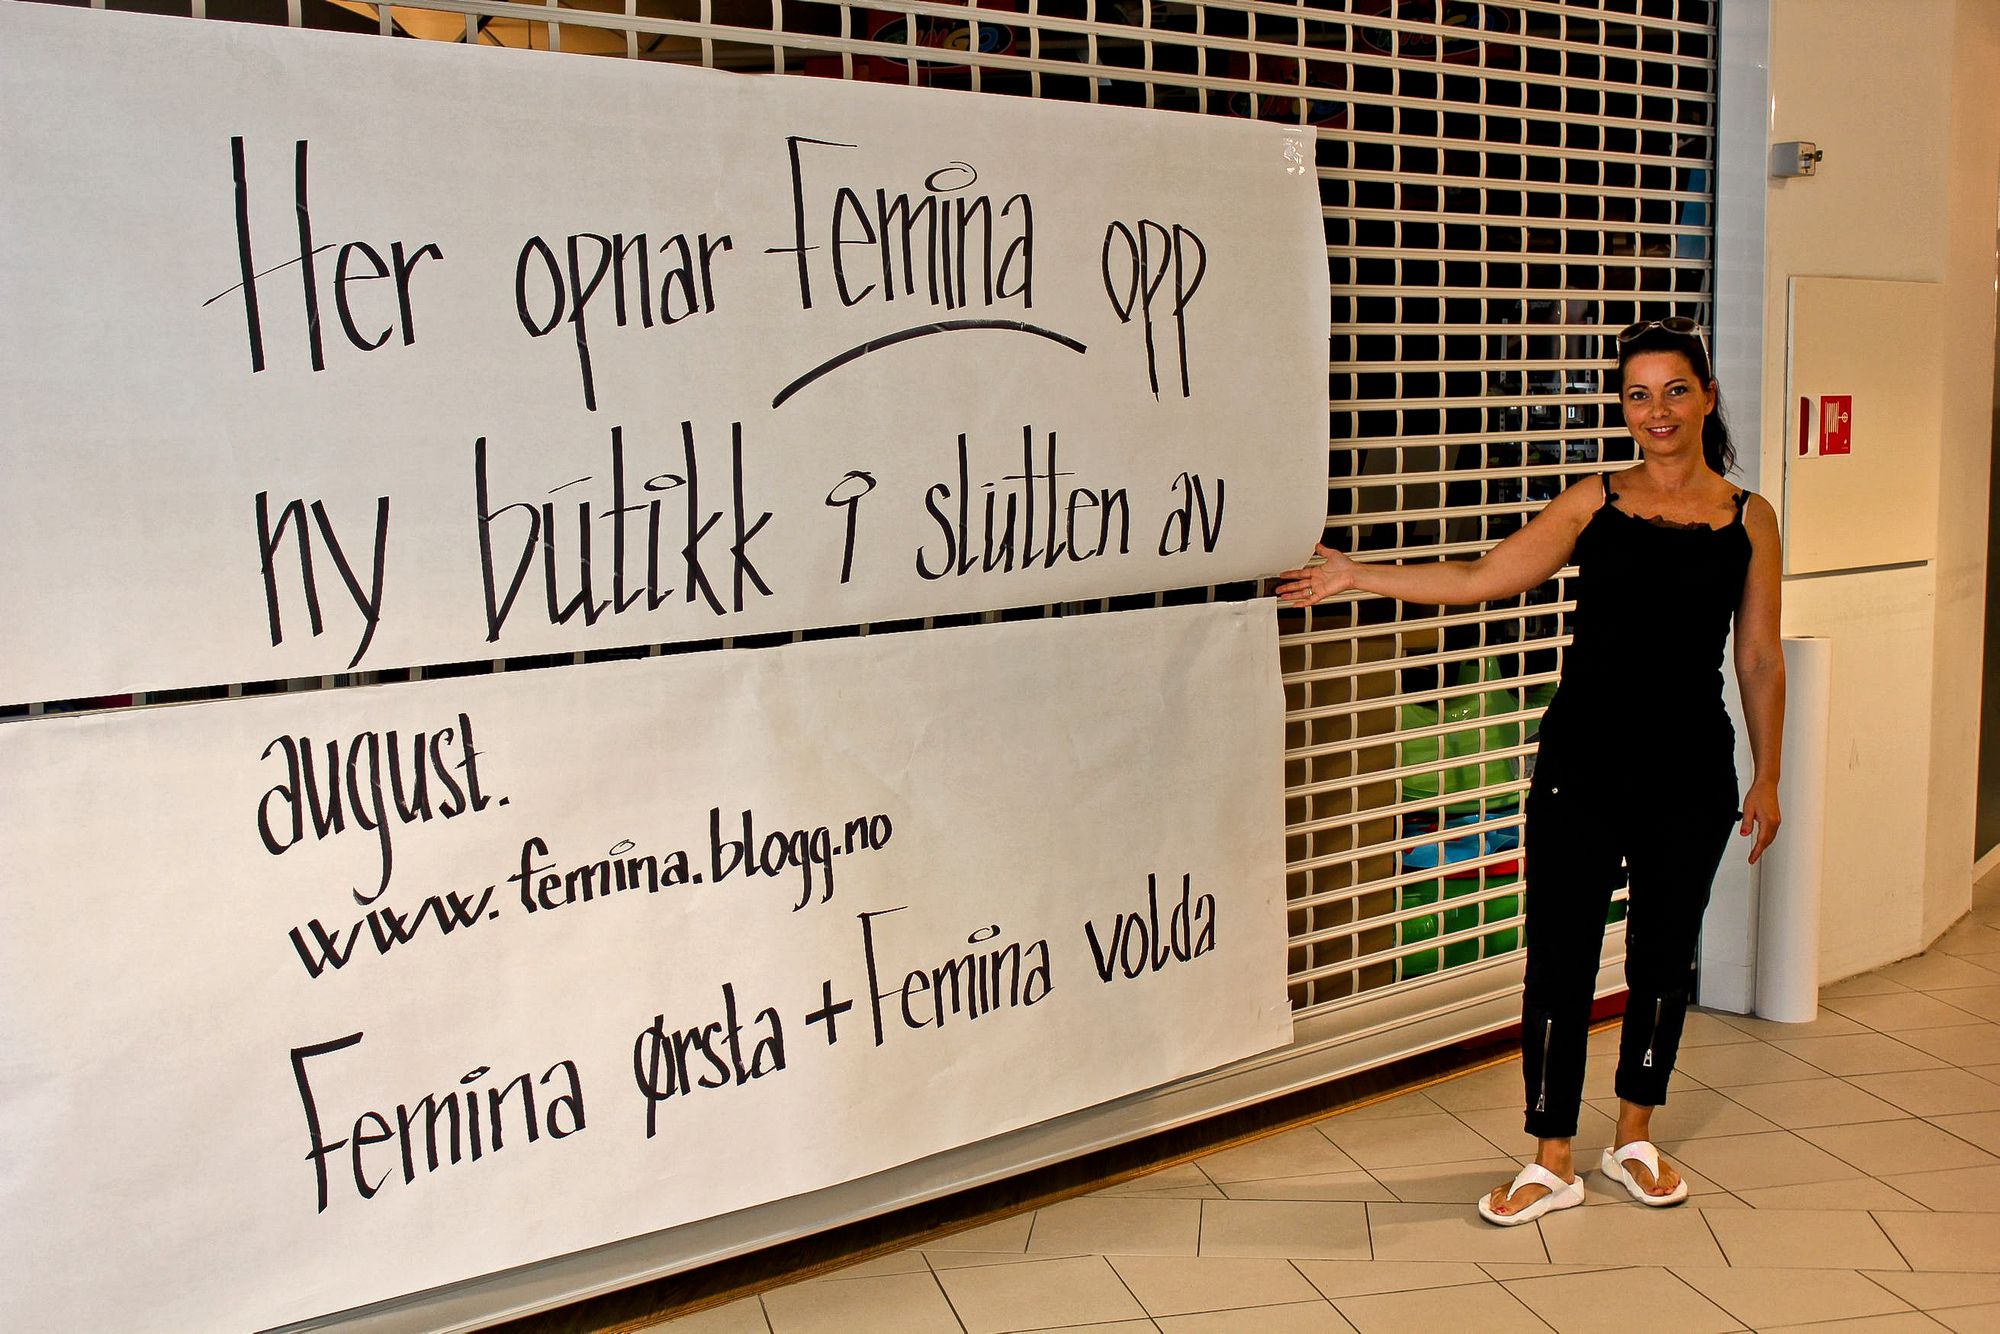 Her opnar Femina opp
ny bútikk i slútten av
august.
www.femina.blogg.no
Femina Ørsta + Femina Volda